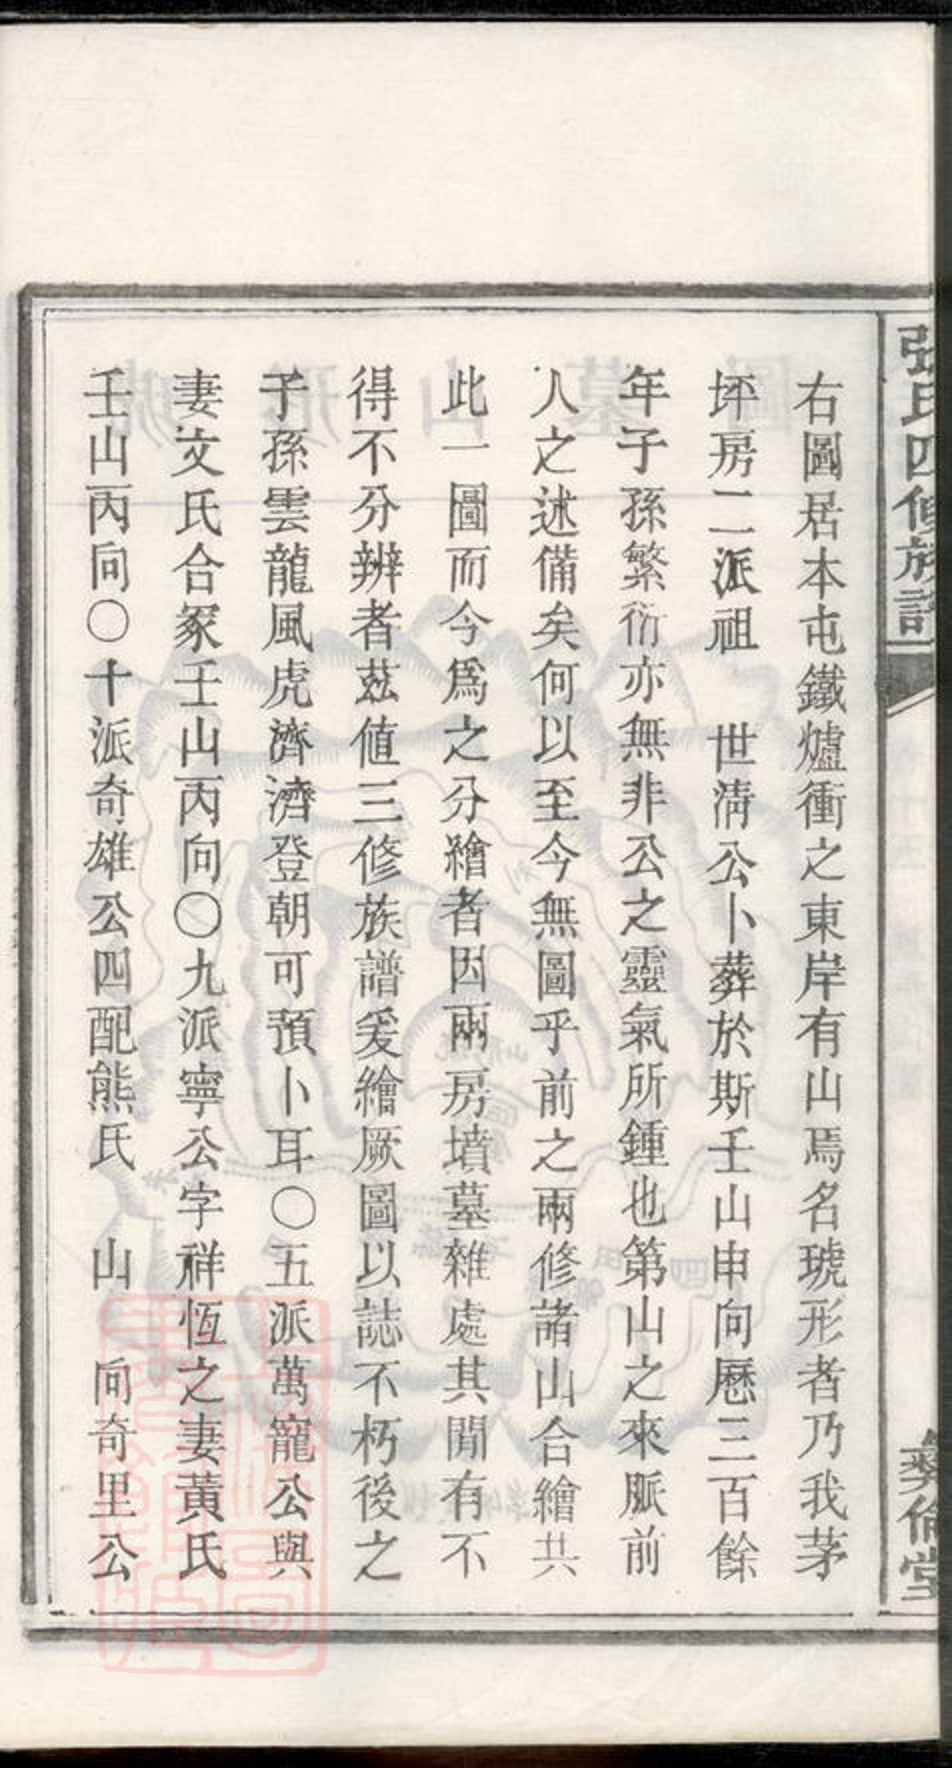 張氏四修族譜
彝倫堂
右圖居本屯鐵爐衝之東岸有山焉名琥形者乃我茅
坪房二派祖　世淸公卜葬於斯壬山申向歷三百餘
年子孫繁衍亦無非公之靈氣所鍾也第山之來脈前
人之述備矣何以至今無圖乎前之兩修諸山合繪共
此一圖而今爲之分繪者因兩房墳墓雜處其閒有不
得不分辨者茲值三修族譜爰繪厥圖以誌不朽後之
子孫雲龍風虎濟濟登朝可預卜耳〇五派萬寵公與
妻文氏合冢壬山丙向〇九派寧公字祥恆之妻黃氏
壬山丙向〇十派奇雄公四配熊氏　山　向奇里公